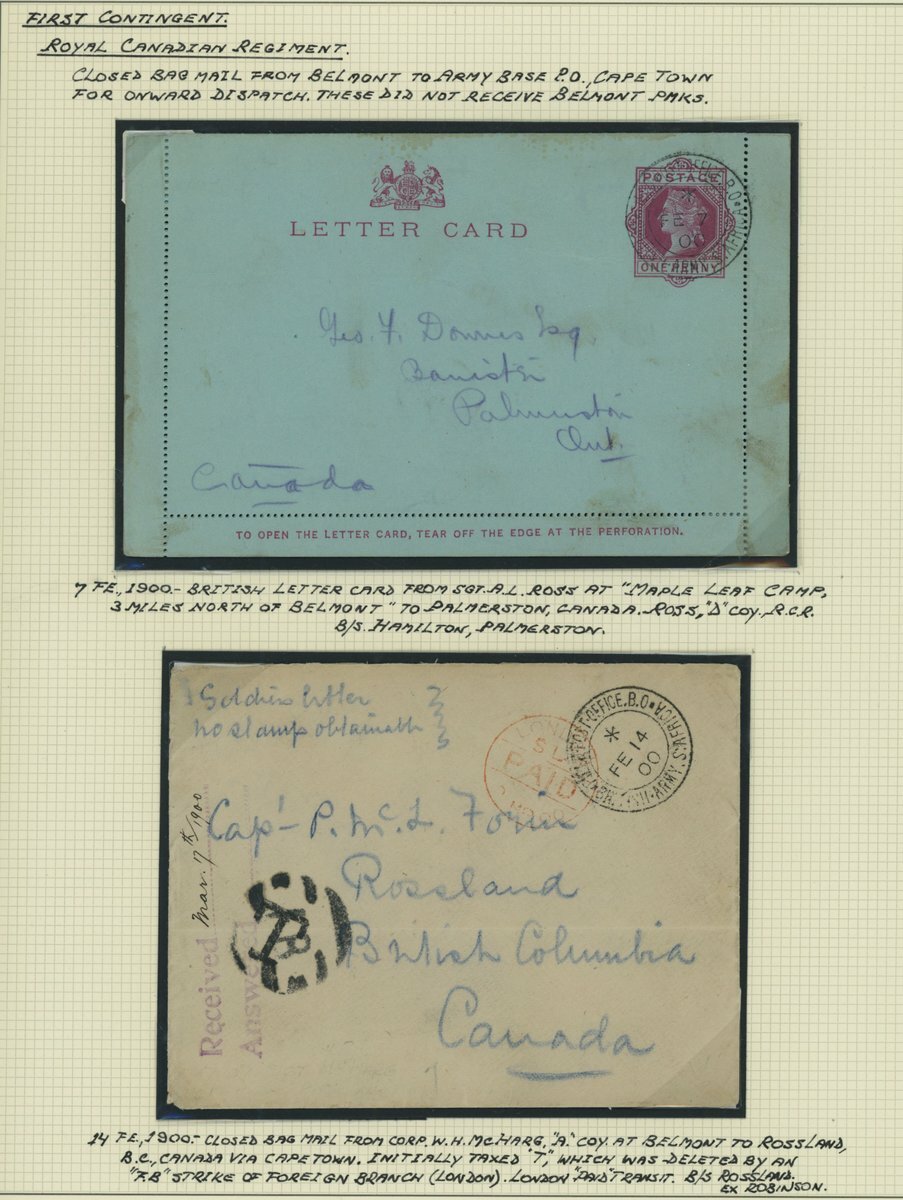 FIRST CONTINGENT.
ROYAL CANADIAN REGIMENT.
CLOSED BAG MAIL FROM BELMONT TO ARMY BASE P.O., CAPE TOWN
FOR ONWARD DISPATCH. THESE DID NOT RECEIVE BELMONT PMKS.
LETTER CARD
POSTAGE
ONE PENNY
*
FE 7
00
Geo. F. Downes Esq
Palmerston
Ont.
Canada
TO OPEN THE LETTER CARD, TEAR OFF THE EDGE AT THE PERFORATION.
7 FE., 1900.- BRITISH LETTER CARD FROM SGT. A.L. ROSS AT "MAPLE LEAF CAMP,
3 MILES NORTH OF BELMONT" TO PALMERSTON, CANADA. ROSS, "D" COY., R.C.R.
B/S. HAMILTON, PALMERSTON.
Soldiers letter
no stamp obtainable
POST.OFFICE.B.O ARMY.S.AFRICA
*
FE 14
00
PAID
Mar. 7th 1900
Received
Answered
Cap't P. Mc. L.
Rossland
British Columbia
Canada
14 FE., 1900.- CLOSED BAG MAIL FROM CORP. W.H. MCHARG, "A." COY. AT BELMONT TO ROSSLAND,
B.C., CANADA VIA CAPETOWN. INITIALLY TAXED "T," WHICH WAS DELETED BY AN
"F.B." STRIKE OF FOREIGN BRANCH (LONDON). LONDON "PAID" TRANSIT. B/S ROSSLAND.
EX ROBINSON.